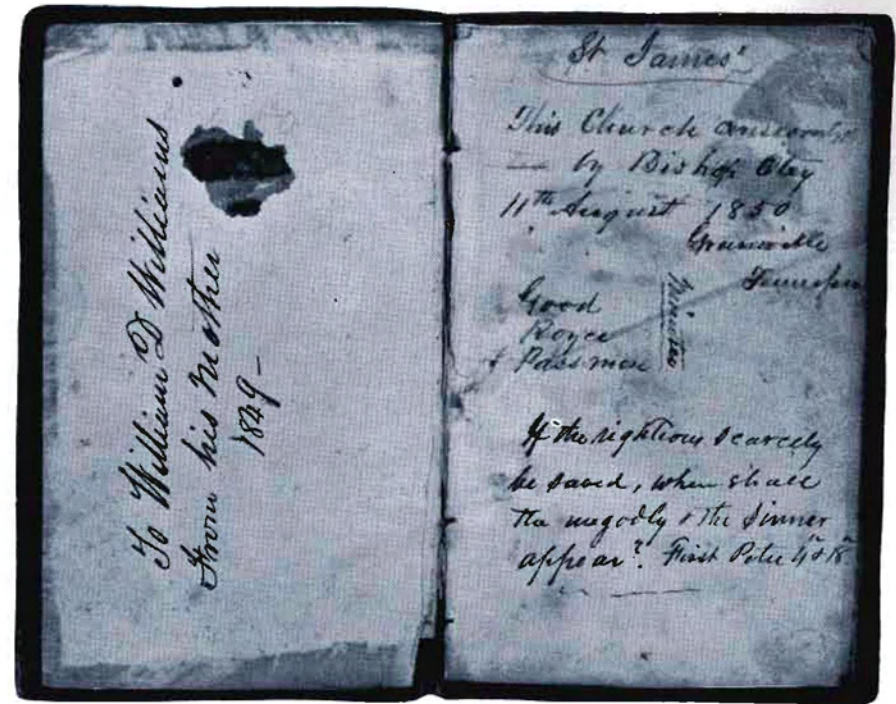 To William D Williams
From his Mother
1849 -
St James'
This Church consecrated
by Bishop Otey
11th August 1850
Greeneville
Tennessee
Good
Royce
& Passmore
Ministers
If the rightious scarcely
be saved, when shall
the ungodly & the Sinner
appear? First Peter 4" & 18"